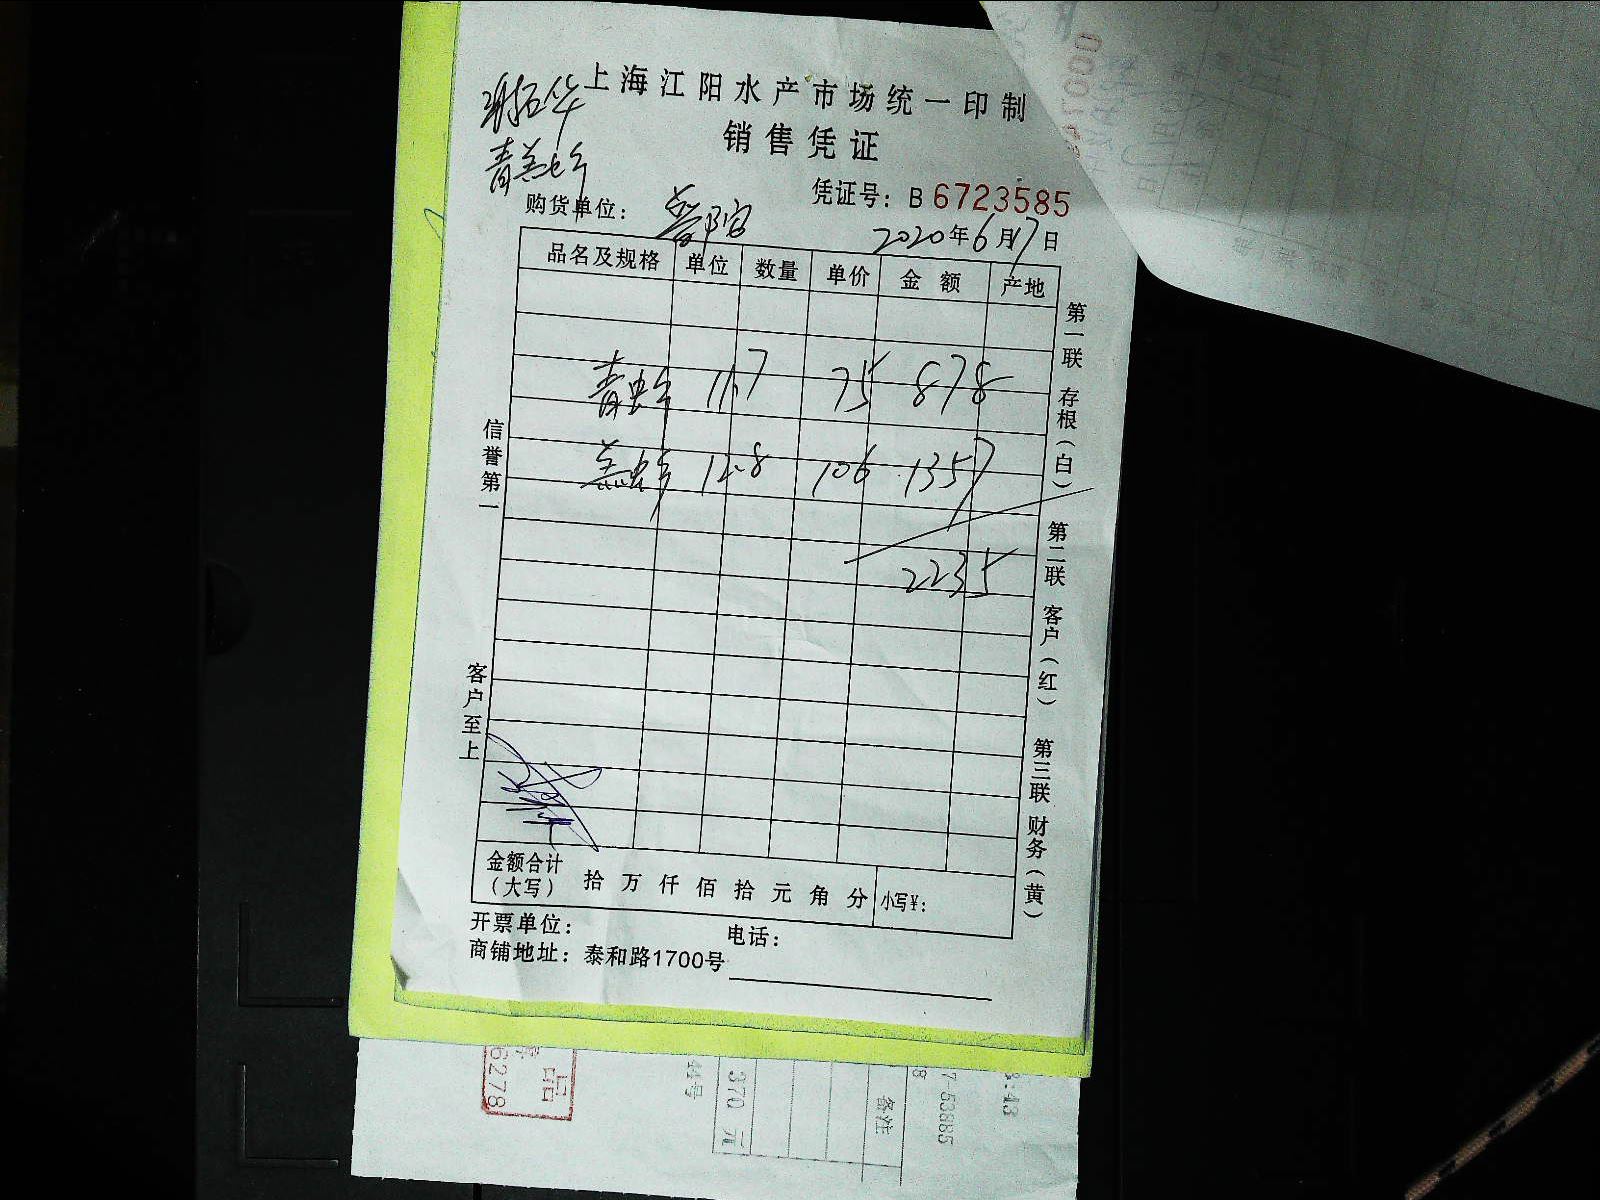 上海江阳水产市场统一印制
销售凭证
凭证号：B 6723585
购货单位：
2020年6月17日
品名及规格 单位 数量 单价 金额 产地
青虾 11.7 75 878
盖虾 12.8 106 1357
2235
信誉第一
客户至上
第一联 存根（白） 第二联 客户（红） 第三联 财务（黄）
金额合计（大写） 拾 万 仟 佰 拾 元 角 分 小写￥：
开票单位： 电话：
商铺地址：泰和路1700号
6278
370 元
备注
7-53885